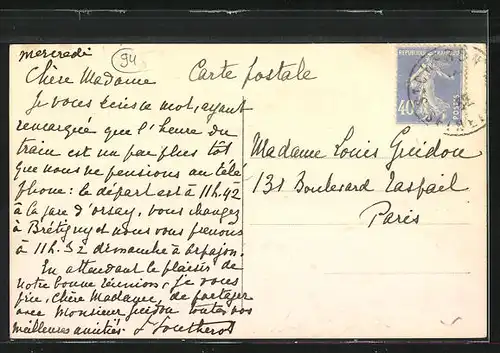 mercredi
94
Chère Madame
Carte postale
RÉPUBLIQUE FRANÇAISE
40c
POSTES
Je vous écris ce mot, ayant
remarqué que l'heure du
train est un peu plus tôt
que nous ne pensions au télé
phone : le départ est à 11h.42
à la gare d'orsay, vous changez
à Brétigny et nous vous prenons
à 11h.32 dimanche à arpajon.
En attendant le plaisir de
notre bonne réunion, je vous
prie, Chère Madame, de partager
avec Monsieur guidou toutes vos
meilleures amitiés
Madame Louis Guidou
131 Boulevard Raspail
Paris